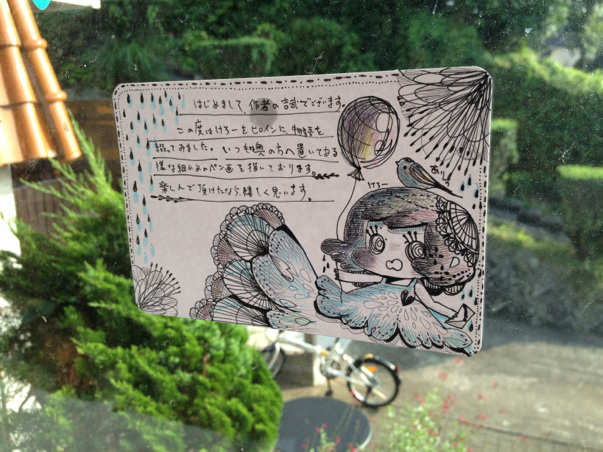 はじめまして 作者の試でございます。
この度はけろーをヒロインに、物語を
描いてみました。いつも奥の方へ置いてある
様な細かめのペン画を描いております。
楽しんで頂けたなら、嬉しく思います。
けろー